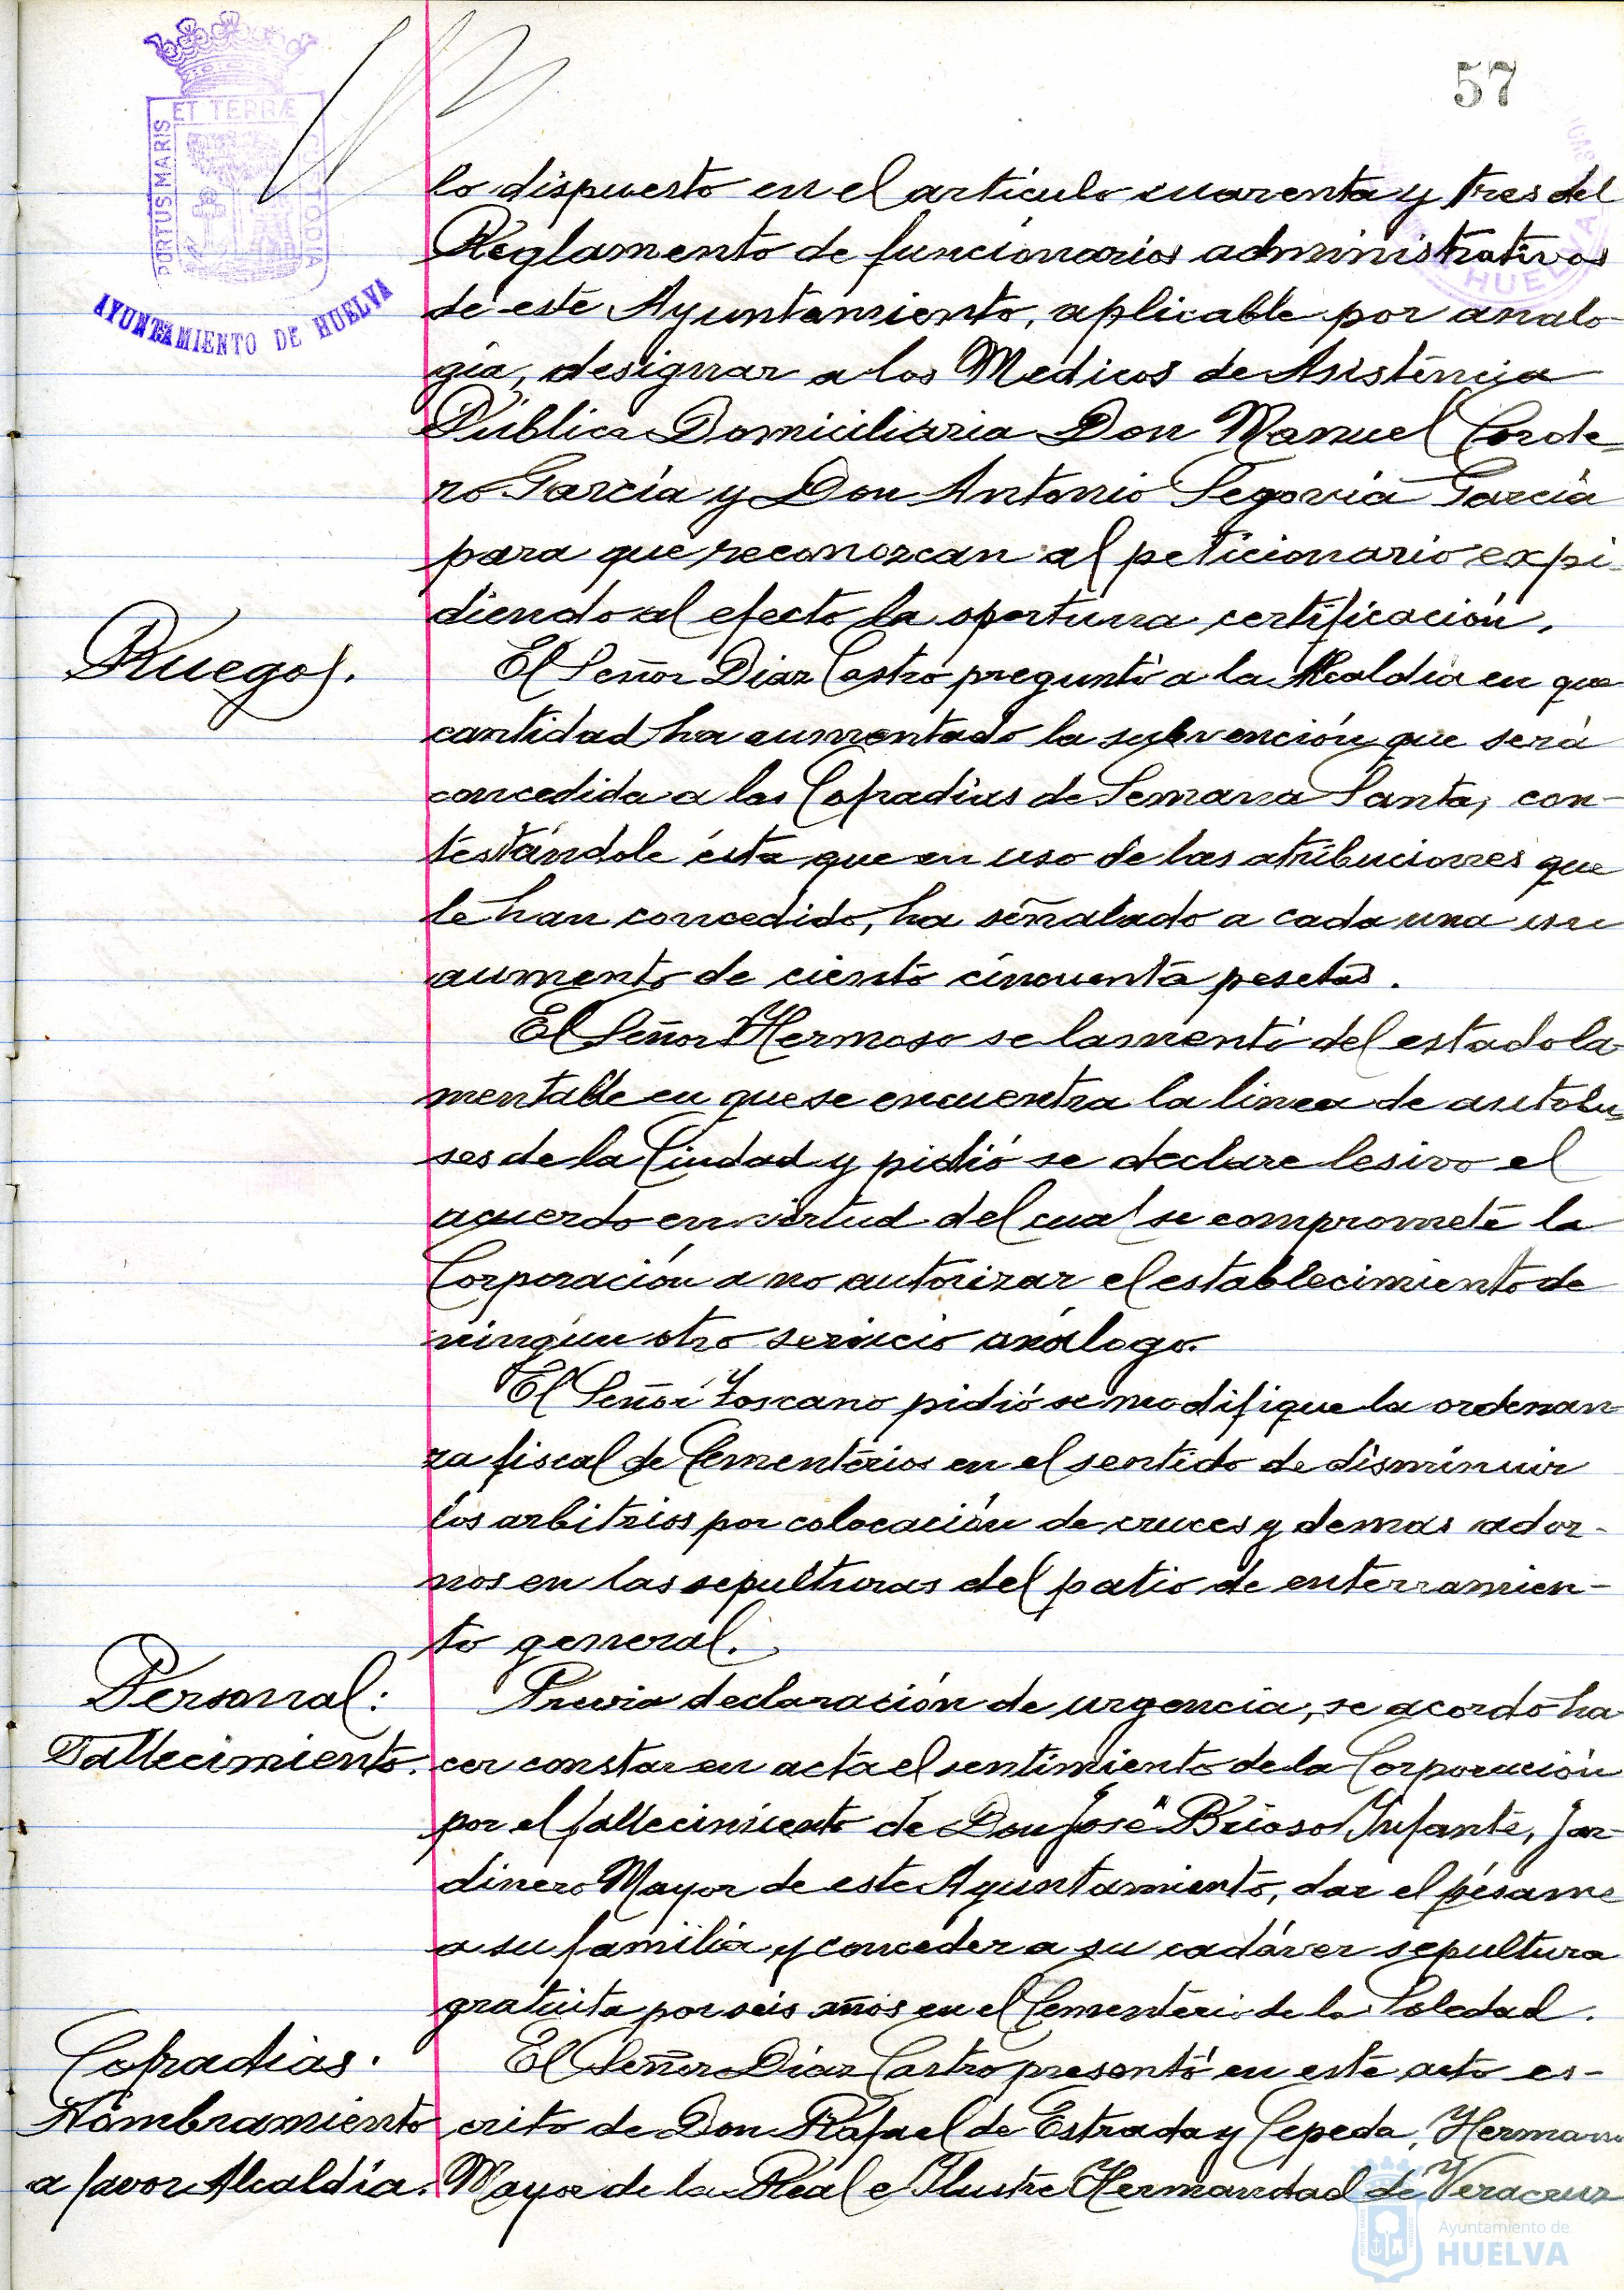 57
ET TERRÆ
PORTUS MARIS
CUSTODIA
AYUNTAMIENTO DE HUELVA
HUELVA
lo dispuesto en el artículo cuarenta y tres del
Reglamento de funcionarios administrativos
de este Ayuntamiento, aplicable por analo-
gía, designar a los Medicos de Asistencia
Pública Domiciliaria Don Manuel Corde-
ro García y Don Antonio Segovia García
para que reconozcan al peticionario expi-
diendo al efecto la oportuna certificación.
Ruegos.
El Señor Diaz Castro preguntó a la Alcaldía en que
cantidad ha aumentado la subvención que será
concedida a las Cofradías de Semana Santa, con-
testándole ésta que en uso de las atribuciones que
le han concedido, ha señalado a cada una un
aumento de ciento cincuenta pesetas.
El Señor Hermoso se lamentó del estado la-
mentable en que se encuentra la linea de autobu-
ses de la Ciudad y pidió se declare lesivo el
acuerdo en virtud del cual se compromete la
Corporación a no autorizar el establecimiento de
ningún otro servicio análogo.
El Señor Toscano pidió se modifique la ordenan-
za fiscal de Cementerios en el sentido de disminuir
los arbitrios por colocación de cruces y demas ador-
nos en las sepulturas del patio de enterramien-
to general.
Personal:
Fallecimiento.
Previa declaración de urgencia, se acordó ha-
cer constar en acta el sentimiento de la Corporación
por el fallecimiento de Don José Brioso Infante, Jar-
dinero Mayor de este Ayuntamiento, dar el pésame
a su familia y conceder a su cadáver sepultura
gratuita por seis años en el Cementerio de la Soledad.
Cofradias.
Nombramiento
a favor Alcaldía.
El Señor Díaz Castro presentó en este acto es-
crito de Don Rafael de Estrada y Cepeda, Hermano
Mayor de la Real e Ilustre Hermandad de Veracruz
Ayuntamiento de
HUELVA